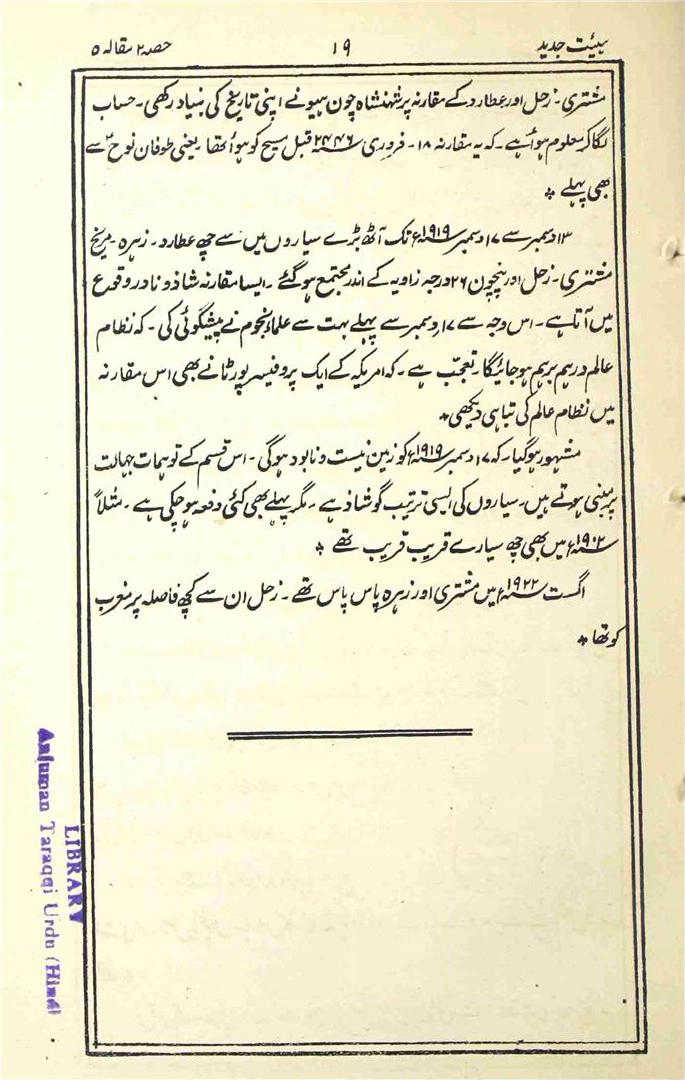 ہیئت جدید ۱۹ حصہ ۲ مقالہ ۵
مشتری۔ زحل اور عطارد کے مقارنہ پر شہنشاہ چون ہیو نے اپنی تاریخ کی بنیاد رکھی۔ حساب
لگا کر معلوم ہوا ہے۔ کہ یہ مقارنہ ۱۸۔ فروری ۲۴۴۶ قبل مسیح کو ہوا تھا۔ یعنی طوفان نوحؑ سے
بھی پہلے ٭
۱۳ دسمبر سے ۱۷ دسمبر ۱۹۱۹ء تک آٹھ بڑے سیاروں میں سے چھ عطارد۔ زہرہ۔ مریخ
مشتری۔ زحل اور نپچون ۲۶ درجہ زاویہ کے اندر مجتمع ہو گئے۔ ایسا مقارنہ شاذ و نادر وقوع
میں آتا ہے۔ اس وجہ سے ۱۷ دسمبر سے پہلے بہت سے علماء نجوم نے پیشگوئی کی۔ کہ نظام
عالم درہم برہم ہو جائیگا۔ تعجب ہے۔ کہ امریکہ کے ایک پروفیسر پورٹا نے بھی اس مقارنہ
میں نظام عالم کی تباہی دیکھی ٭
مشہور ہو گیا۔ کہ ۱۷ دسمبر ۱۹۱۹ء کو زمین نیست و نابود ہوگی۔ اس قسم کے توہمات جہالت
پر مبنی ہوتے ہیں۔ سیاروں کی ایسی ترتیب گو شاذ ہے۔ مگر پہلے بھی کئی دفعہ ہو چکی ہے۔ مثلاً
۱۹۰۲ء میں بھی چھ سیارے قریب قریب تھے ٭
اگست ۱۹۲۲ء میں مشتری اور زہرہ پاس پاس تھے۔ زحل ان سے کچھ فاصلہ پر مغرب
کو تھا ٭
LIBRARY
Anjuman Taraqqi Urdu (Hind)